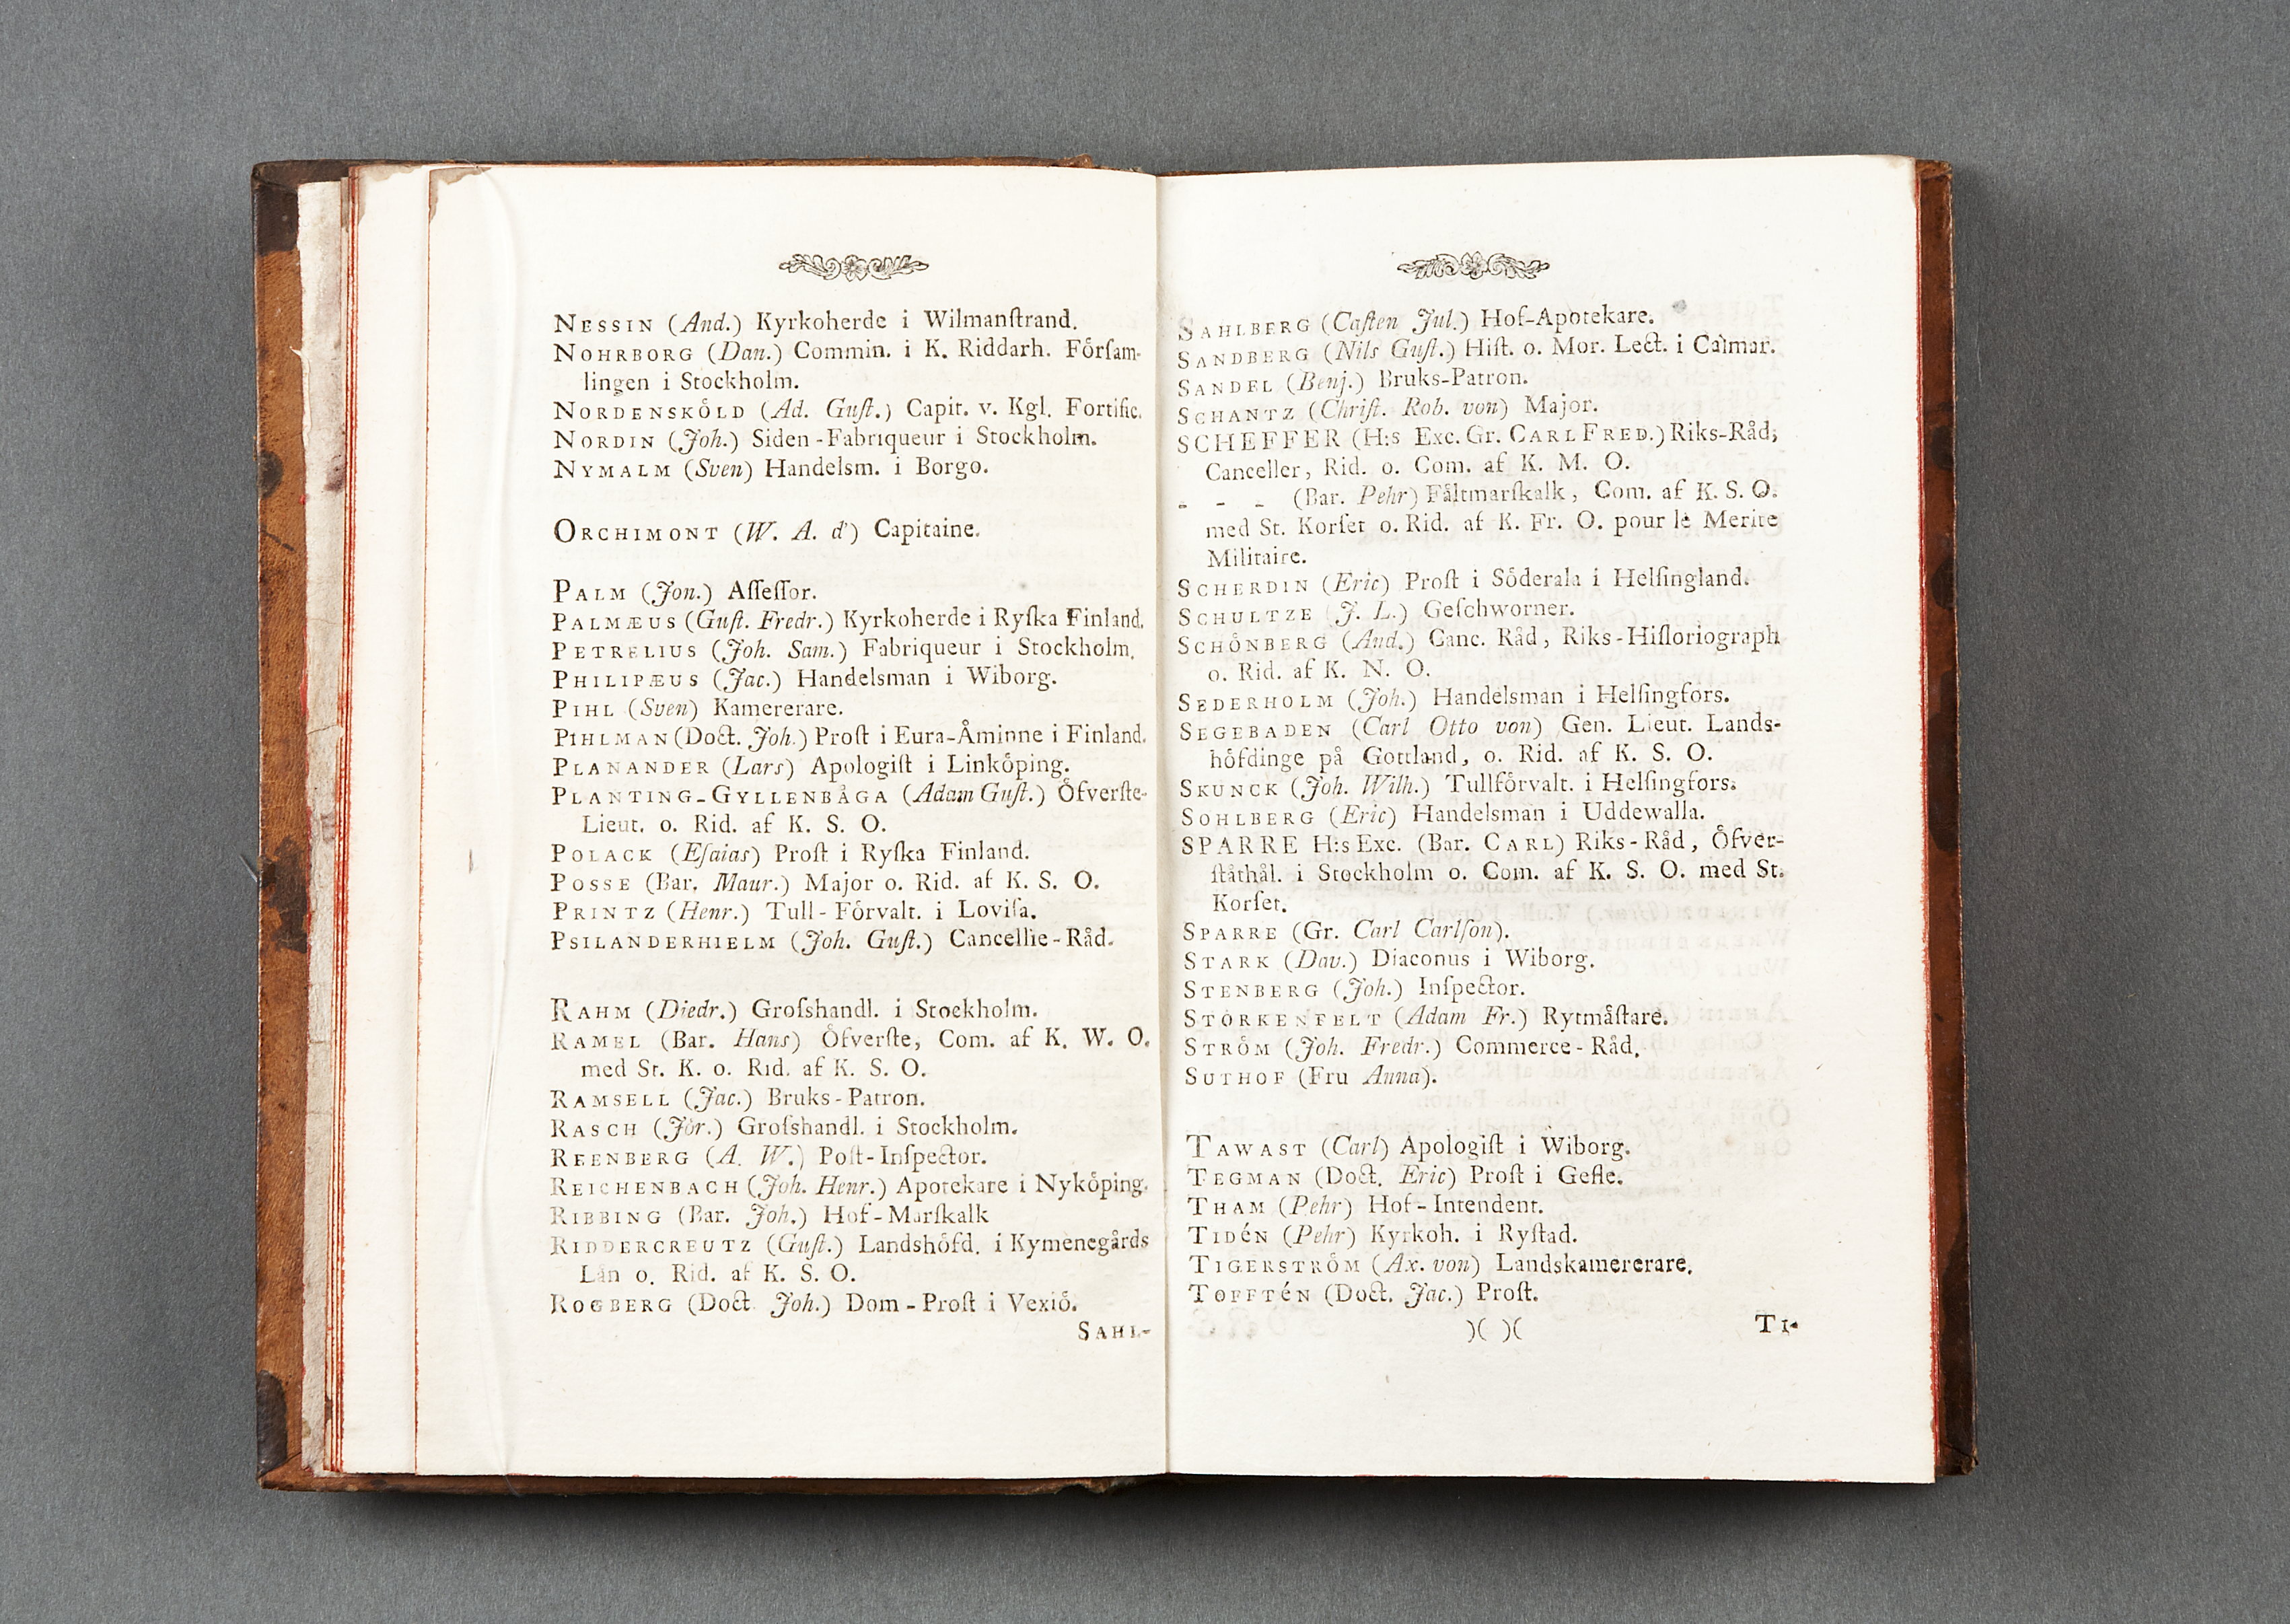 NESSIN (And.) Kyrkoherde i Wilmanſtrand.
NOHRBORG (Dan.) Commin. i K. Riddarh. Förſam-
lingen i Stockholm.
NORDENSKÖLD (Ad. Guſt.) Capit. v. Kgl. Fortific.
NORDIN (Joh.) Siden-Fabriqueur i Stockholm.
NYMALM (Sven) Handelsm. i Borgo.
ORCHIMONT (W. A. d') Capitaine.
PALM (Jon.) Aſſeſſor.
PALMÆUS (Guſt. Fredr.) Kyrkoherde i Ryſka Finland.
PETRELIUS (Joh. Sam.) Fabriqueur i Stockholm.
PHILIPÆUS (Jac.) Handelsman i Wiborg.
PIHL (Sven) Kamererare.
PIHLMAN (Doct. Joh.) Proſt i Eura-Åminne i Finland.
PLANANDER (Lars) Apologiſt i Linköping.
PLANTING-GYLLENBÅGA (Adam Guſt.) Öfverſte-
Lieut. o. Rid. af K. S. O.
POLACK (Eſaias) Proſt i Ryſka Finland.
POSSE (Bar. Maur.) Major o. Rid. af K. S. O.
PRINTZ (Henr.) Tull-Förvalt. i Loviſa.
PSILANDERHIELM (Joh. Guſt.) Cancellie-Råd.
RAHM (Diedr.) Groſshandl. i Stockholm.
RAMEL (Bar. Hans) Öfverſte, Com. af K. W. O.
med St. K. o. Rid. af K. S. O.
RAMSELL (Jac.) Bruks-Patron.
RASCH (Jör.) Groſshandl. i Stockholm.
REENBERG (A. W.) Poſt-Inſpector.
REICHENBACH (Joh. Henr.) Apotekare i Nyköping.
RIBBING (Bar. Joh.) Hof-Marſkalk
RIDDERCREUTZ (Guſt.) Landshöfd. i Kymenegårds
Län o. Rid. af K. S. O.
ROGBERG (Doct. Joh.) Dom-Proſt i Vexiö.
SAHL-
SAHLBERG (Caſten Jul.) Hof-Apotekare.
SANDBERG (Nils Guſt.) Hiſt. o. Mor. Lect. i Calmar.
SANDEL (Benj.) Bruks-Patron.
SCHANTZ (Chriſt. Rob. von) Major.
SCHEFFER (H:s Exc. Gr. CARL FRED.) Riks-Råd,
Canceller, Rid. o. Com. af K. M. O.
- - - (Bar. Pehr) Fältmarſkalk, Com. af K. S. O.
med St. Korſet o. Rid. af K. Fr. O. pour le Merite
Militaire.
SCHERDIN (Eric) Proſt i Söderala i Helſingland.
SCHULTZE (J. L.) Geſchworner.
SCHÖNBERG (And.) Canc. Råd, Riks-Hiſtoriograph
o. Rid. af K. N. O.
SEDERHOLM (Joh.) Handelsman i Helſingfors.
SEGEBADEN (Carl Otto von) Gen. Lieut. Lands-
höfdinge på Gottland, o. Rid. af K. S. O.
SKUNCK (Joh. Wilh.) Tullförvalt. i Helſingfors.
SOHLBERG (Eric) Handelsman i Uddewalla.
SPARRE H:s Exc. (Bar. CARL) Riks-Råd, Öfver-
ſtåthål. i Stockholm o. Com. af K. S. O. med St.
Korſet.
SPARRE (Gr. Carl Carlſon).
STARK (Dav.) Diaconus i Wiborg.
STENBERG (Joh.) Inſpector.
STÖRKENFELT (Adam Fr.) Rytmäſtare.
STRÖM (Joh. Fredr.) Commerce-Råd.
SUTHOF (Fru Anna).
TAWAST (Carl) Apologiſt i Wiborg.
TEGMAN (Doct. Eric) Proſt i Gefle.
THAM (Pehr) Hof-Intendent.
TIDÉN (Pehr) Kyrkoh. i Ryſtad.
TIGERSTRÖM (Ax. von) Landskamererare.
TOFFTÉN (Doct. Jac.) Proſt.
)( )( TI-